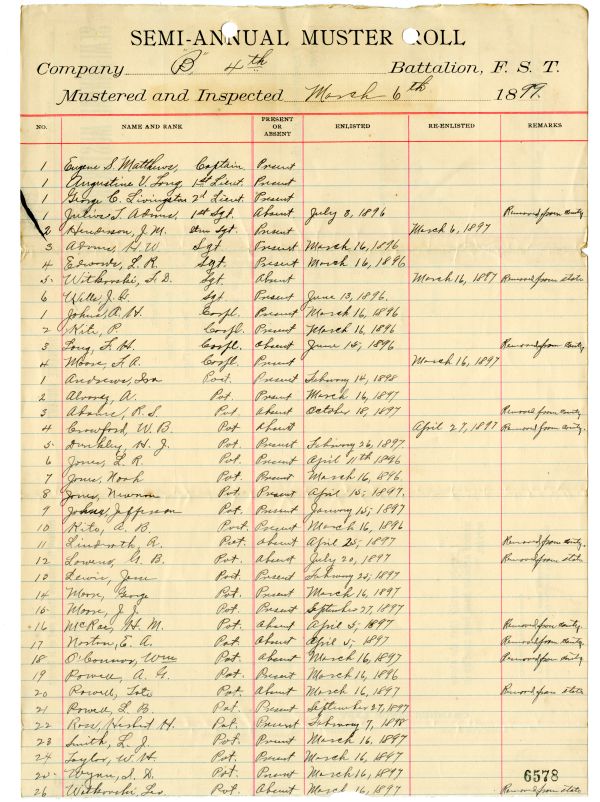 SEMI-ANNUAL MUSTER ROLL
Company "B" 4th Battalion, F. S. T.
Mustered and Inspected March 6th 1899.
NO. NAME AND RANK PRESENT OR ABSENT ENLISTED RE-ENLISTED REMARKS
1 Eugene S. Matthews, Captain Present
1 Augustine V. Long, 1st Lieut. Present
1 George C. Livingston 2d Lieut. Present
1 Julius T. Adams, 1st Sgt. Absent July 3, 1896 Removed from County
2 Henderson, J. M. Sgt. Present March 6, 1897
3 Adams, H. W. Sgt Present March 16, 1896
4 Edwards, L. R. Sgt. Present March 16, 1896
5 Witkovski, S. D. Sgt Absent March 16, 1897 Removed from state
6 Wills, J. G. Sgt Present June 13, 1896.
1 Johns, A. H. Corpl. Present March 16, 1896
2 Kite, P. Corpl. Present March 16, 1896
3 Long, F. H. Corpl. Absent June 14, 1896 Removed from County
4 Moore, F. A. Corpl. Present March 16, 1897
1 Andrews, Ira Pvt. Present February 14, 1898
2 Alvarez, A. Pvt. Present March 16, 1897
3 Adams, R. S. Pvt. Absent October 18, 1897 Removed from County
4 Crawford, W. B. Pvt. Absent April 27, 1897 Removed from County.
5 H. J. Pvt. Present February 26, 1897
6 Jones, L. R. Pvt. Present April 11th 1896
7 Jones, Noah Pvt. Present March 16, 1896
8 Jones, Newnan Pvt. Present April 15, 1897.
9 Johns, Jefferson Pvt. Present January 15, 1897
10 Kite, A. B. Pvt. Present March 16, 1896
11 A. Pvt. Absent April 25, 1897 Removed from County
12 G. B. Pvt. Absent July 20, 1897 Removed from state
13 Lewis, Pvt. Present February 25, 1897
14 Moore, George Pvt. Present March 16, 1897
15 Moore, J. J. Pvt. Present September 27, 1897
16 McRae, H. M. Pvt. Absent April 5, 1897 Removed from County
17 Norton, E. A. Pvt. Absent April 5, 1897 Removed from County
18 O'Connor, Wm Pvt. Absent March 16, 1897 Removed from County
19 Powell, A. G. Pvt. Present March 16, 1896
20 Powell, Pvt. Absent March 16, 1897 Removed from state
21 Powell L. B. Pvt. Present September 27, 1897
22 Ross, Herbert H. Pvt. Present February 7, 1898
23 Smith, L. J. Pvt. Present March 16, 1897
24 Taylor, W. H. Pvt. Present March 16, 1897
25 Wynn, S. D. Pvt. Present March 16, 1897
6578
26 Witkovski, Leo. Pvt. Absent March 16, 1897 Removed from state